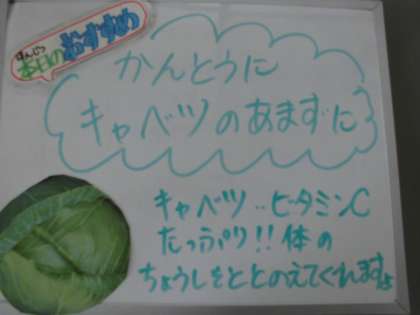 ほんじつ
本日のおすすめ
かんとうに
キャベツのあまずに
キャベツ‥ビタミンC
たっぷり!!体の
ちょうしをととのえてくれますよ